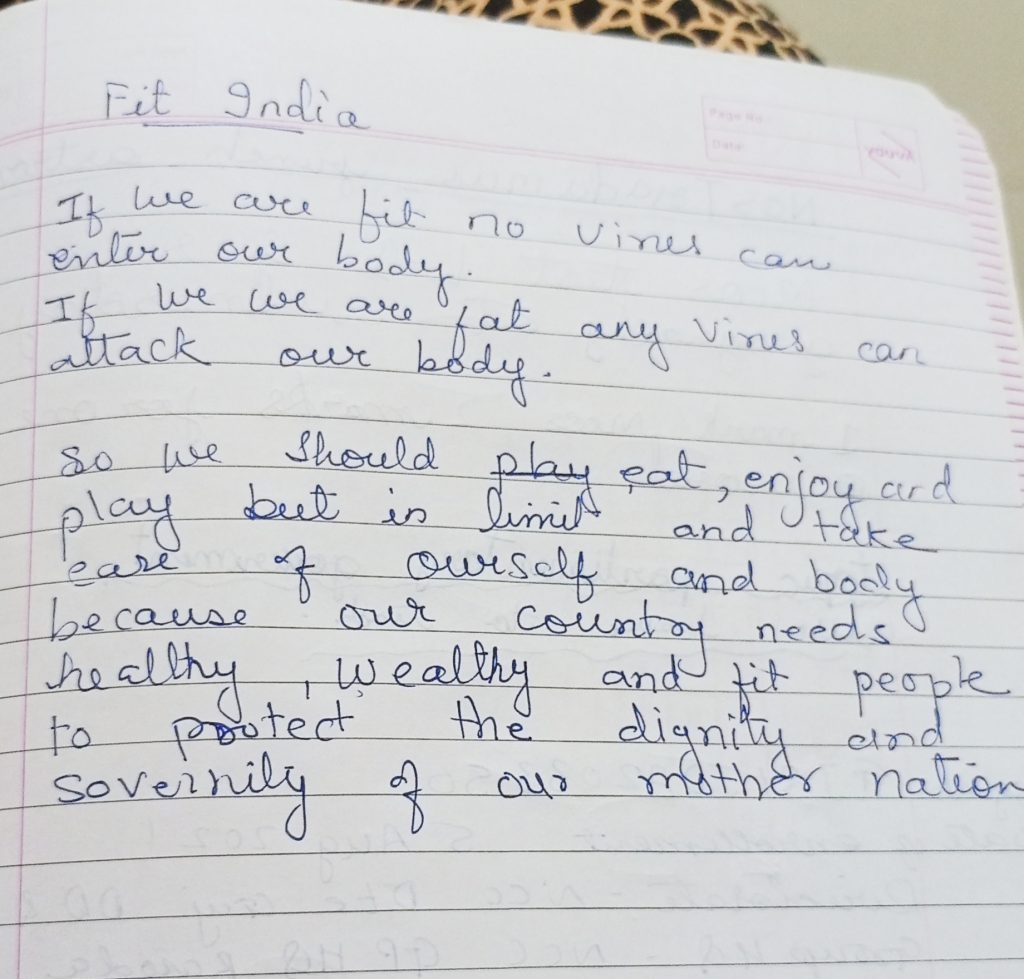 Fit India
Page No.
Date
If we are fit no virus can
enter our body.
If we we are fat any virus can
attack our body.
So we should play eat, enjoy and
play but in limit and take
care of ourself and body
because our country needs
healthy, wealthy and fit people
to protect the dignity and
sovernity of our mother nation